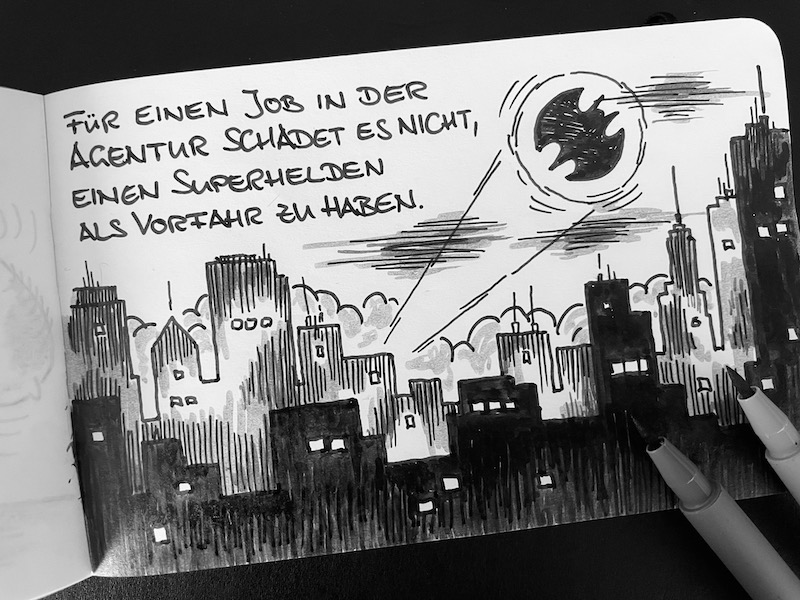 FÜR EINEN JOB IN DER
AGENTUR SCHADET ES NICHT,
EINEN SUPERHELDEN
ALS VORFAHR ZU HABEN.